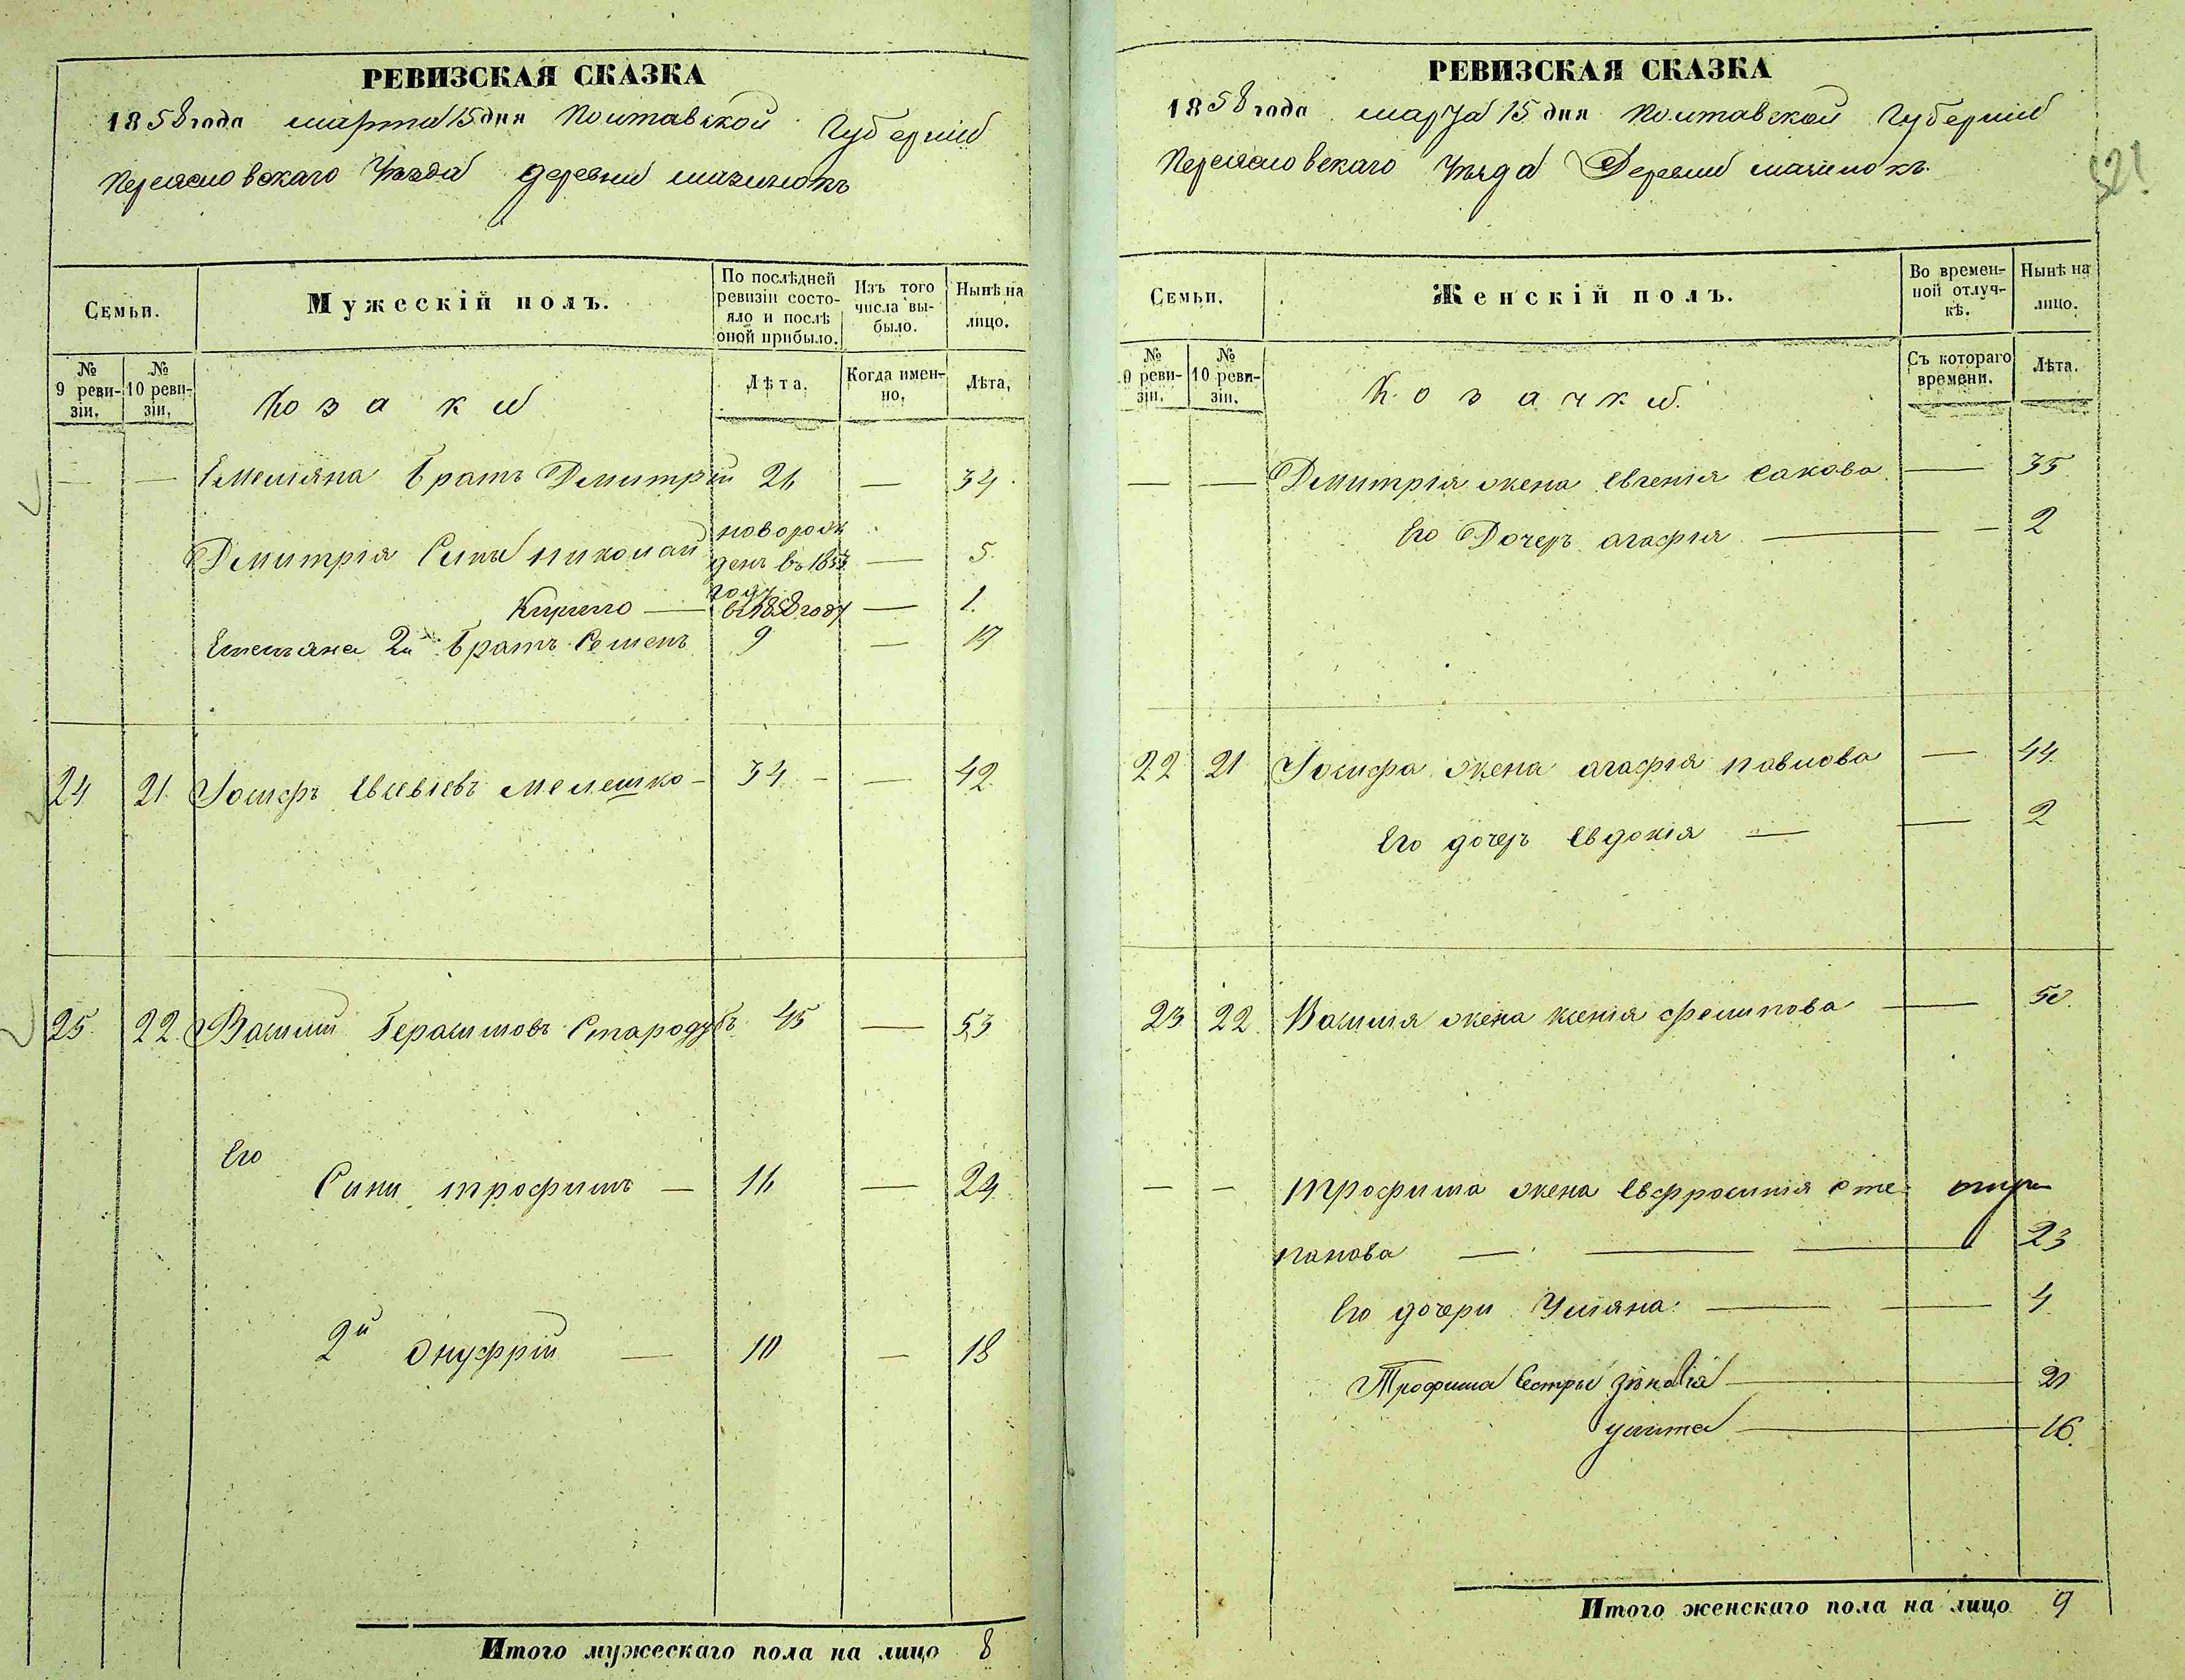 РЕВИЗСКАЯ СКАЗКА
1858 года марта 15 дня Полтавской Губернии
Переяславскаго Уѣзда деревни
Семьи.
Мужескій полъ.
По послѣдней ревизіи состояло и послѣ оной прибыло.
Изъ того числа выбыло.
Нынѣ на лицо.
№ 9 ревизіи.
№ 10 ревизіи.
Козаки
Лѣта.
Когда именно.
Лѣта.
— — Емеляна братъ Дмитрій 26 — 34
Дмитрія Сыны Николай новорожденъ въ 1853 году — 5
Кирило — в 1858 году — 1.
Емеляна 2й братъ Семенъ 9 — 17
24 21 Іосифъ Евсевіевъ Мелешко — 34 — — 42
25 22 Василій Герасимовъ Стародубъ 45 — 53
Его
Сыни трофимъ — 16 — 24
2й Онуфрій — 10 — 18
Итого мужескаго пола на лицо 8
РЕВИЗСКАЯ СКАЗКА
1858 года марта 15 дня Полтавской Губерніи
Переяславскаго Уѣзда Деревни
521
Семьи.
Женскій полъ.
Во временной отлучкѣ.
Нынѣ на лицо.
№ 9 ревизіи.
№ 10 ревизіи.
Козачки.
Съ котораго времени.
Лѣта.
— — Дмитрія жена Евгенія Сакова — 35
Его Дочеръ агафія — — 2
22 21 Іосифа жена агафія павлова — 44
Его дочеръ Евдокія — — 2
23 22 Василія жена ксенія филипова — 50
— — трофима жена Евфросинія сте
панова — — — 23
Его дочери Уляна — — 4
Трофима Сестры Зѣновія — 21
улита — 16.
Итого женскаго пола на лицо 9